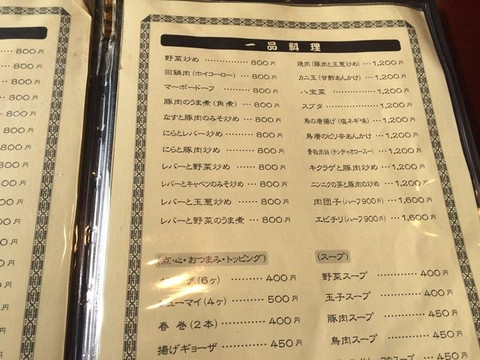 一品料理
野菜炒め ……… 800円
回鍋肉(ホイコーロー)… 800円
マーボードーフ ……… 800円
豚肉のうま煮(角煮) … 800円
なすと豚肉のみそ炒め … 800円
にらとレバー炒め …… 800円
にらと豚肉炒め ……… 800円
レバーと野菜炒め …… 800円
レバーとキャベツのみそ炒め … 800円
レバーと玉葱炒め …… 800円
レバーと野菜のうま煮 … 800円
焼肉(豚肉と玉葱炒め) … 1,200円
カニ玉(甘酢あんかけ) … 1,200円
八宝菜 ……… 1,200円
スブタ ……… 1,200円
鳥の唐揚げ(塩ネギ味) … 1,200円
鳥唐のピリ辛あんかけ … 1,200円
青椒肉絲(チンディオロース)… 1,200円
キクラゲと豚肉炒め … 1,200円
ニンニクの芽と豚肉の炒め … 1,200円
肉団子(ハーフ900円) … 1,600円
エビチリ(ハーフ900円) … 1,600円
(点・心・おつまみ・トッピング)
(6ヶ) ……… 400円
ューマイ(4ヶ) ……… 500円
春巻(2本) ……… 400円
揚げギョーザ ……… 450円
(スープ)
野菜スープ ……… 400円
玉子スープ ……… 400円
豚肉スープ ……… 450円
鳥肉スープ ……… 450円
800円
800円
800円
800円
800円
800円
800円
800円
800円